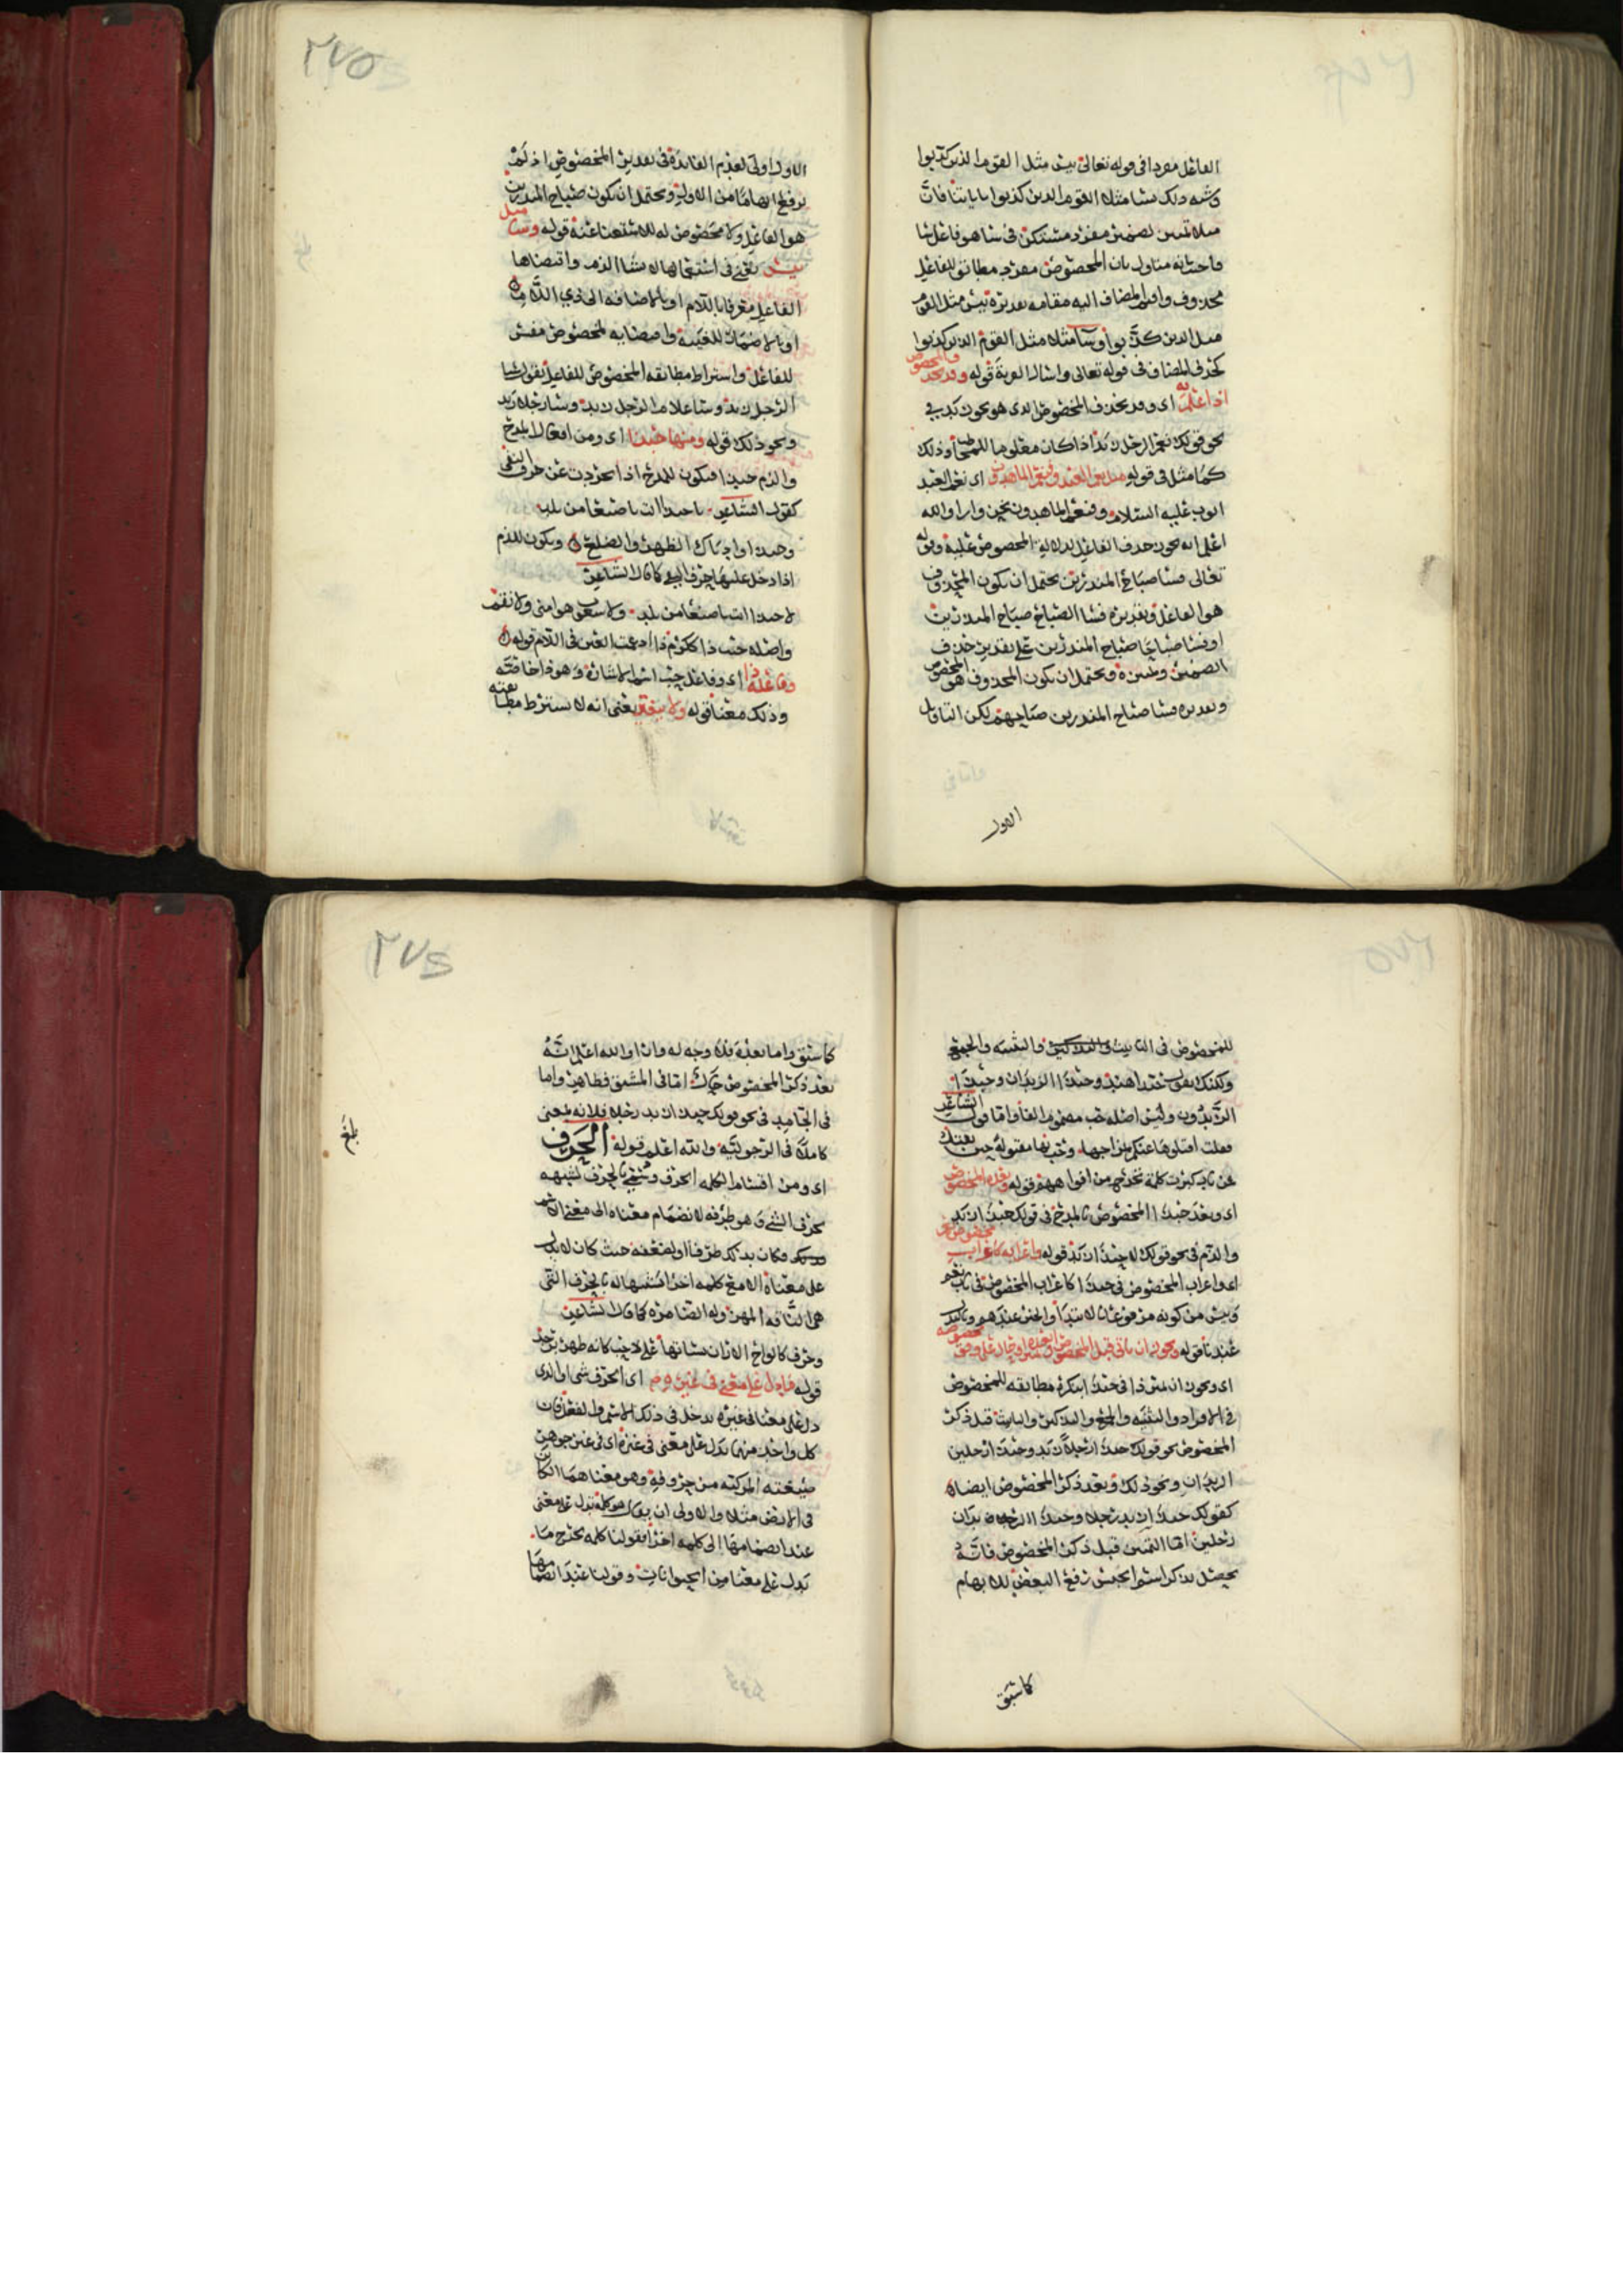 الفاعل مفردا في قوله تعالى بئس مثل القوم الذين كذبوا
وشبه ذلك ساء مثلا القوم الذين كذبوا باياتنا فان
مثلا تمييز لضمير مفرد مستكن في ساء هو فاعل ساء
واجيب انه متاول بان المخصوص مفرد مطابق للفاعل
محذوف واقيم المضاف اليه مقامه تقديره بئس مثل القوم
مثل الذين كذبوا وساء مثلا مثل القوم الذين كذبوا
كحذف المضاف في قوله تعالى واسال القرية قوله وقد يحذف المخصوص
اذا علم اي وقد يحذف المخصوص الذي هو نحو زيد في
نحو قولك نعم الرجل زيد اذا كان معلوما للمخاطب وذلك
كما مثل في قوله مثل نعم العبد وفنعم الماهدون اي نعم العبد
ايوب عليه السلام وفنعم الماهدون نحن والله
اعلم انه يجوز حذف الفاعل لدلالة المخصوص عليه وقوله
تعالى فساء صباح المنذرين يحتمل ان يكون المحذوف
هو الفاعل وتقديره فساء الصباح صباح المنذرين
او فساء صباحا صباح المنذرين على تقدير حذف
الضمير وتمييزه ويحتمل ان يكون المحذوف هو المخصوص
وتقديره فساء صباح المنذرين صباحهم لكن التاويل
الاول
٢٧٥
الاول اولى لعدم الفائدة في تقدير المخصوص اذ لم
يرفع ابهاما من الاول ويحتمل ان يكون صباح المنذرين
هو الفاعل ولا مخصوص له للاستغنا عنه قوله وساء مثل
بئس يعني في استعمالها لانشاء الذم واقتضاها
الفاعل معرفا باللام او بالاضافة الى ذي اللام
او بالاضمار للغيبة واقتضايه لمخصوص مفسر
للفاعل واشتراط مطابقه المخصوص للفاعل تقول ساء
الرجل زيد وساء غلام الرجل زيد وساء رجلا زيد
ونحو ذلك قوله ومنها حبذا اي ومن افعال المدح
والذم حبذا فيكون للمدح اذا تجردت عن حرف النفي
كقول الشاعر يا حبذا انت يا صنعا من بلد
وحبذا واديك الظهر والضلع ويكون للذم
اذا دخل عليها حرف النفي كما قال الشاعر
لا حبذا انت يا صنعا من بلد ولا شعوب هوا مني ولا نقم
واصله حبب ذا ككرم ذا ادغمت العين في اللام قوله
وفاعله ذا اي وفاعل حب اسم الاشارة وهو ذا خاصة
وذلك معنا قوله ولا يتغير يعني انه لا يشترط مطابقته
للمخصوص في التانيث والتذكير والتثنيه والجمع
ولكنك تقول حبذا هند وحبذا الزيدان وحبذا
الزيدون وليس اصله حب مضموم الفا واما قول الشاعر
فقلت اقتلوها عنكم بمزاجها وحب بها مقتولة حين تقتل
اي وبعد حبذا المخصوص بالمدح في قولك حبذا زيد
والذم في نحو قولك لا حبذا زيد قوله واعرابه كاعراب مخصوص نعم
اي واعراب المخصوص في حبذا كاعراب المخصوص في باب نعم
وبئس من كونه مرفوعا بالابتدا والخبر عندهم
عندنا قوله ويجوز ان ياتي قبل المخصوص وبعده تمييز او حال على وفق مخصوصه
اي ويجوز ان يميز ذا في حبذا بنكرة مطابقه للمخصوص
في الافراد والتثنيه والجمع والتذكير والتانيث قبل ذكر
المخصوص نحو قولك حبذا رجلا زيد وحبذا رجلين
الزيدان ونحو ذلك وبعد ذكر المخصوص ايضا
كقولك حبذا زيد رجلا وحبذا الزيدان
رجلين اما التمييز قبل ذكر المخصوص فانه
يحصل بذكر اسم الجنس رفع البعض للابهام
كما سبق
٢٧٦
كما سبق واما بعده فلا وجه له وان والله اعلم انه
بعد ذكر المخصوص حال اما في المشتق فظاهر واما
في الجامد في نحو قولك حبذا زيد رجلا فلانه بمعنى
كاملا في الرجولية والله اعلم قوله الحرف
اي ومن اقسام الكلمه الحرف وسمي بالحرف لشبهه
بحرف الشي وهو طرفه لانضمام معناه الى معنى الاسم
فكان بذلك طرفا او لضعفه حيث كان لا يدل
على معناه الا مع كلمه اخرا شبها له بالحرف التي
هي الناقه المهزوله الضامره كما قال الشاعر
وحرف كالواح الاران نساتها على لاحب كانه ظهر برجد
قوله ما دل على معنى في غيره اي الحرف شي او الذي
دل على معنا في غيره يدخل في ذلك الاسم والفعل فان
كل واحد منهما يدل على معنى في غيره اي في غير جوهر
صيغته المركبه من حروفه وهو معناهما الكائن
في الارض مثلا والاولى ان يقال هو كلمة تدل على معنى
عند انضمامها الى كلمه اخرا فقولنا كلمه يخرج ما
يدل على معنا من الحيوانات وقولنا عند انضمامها
بلغ